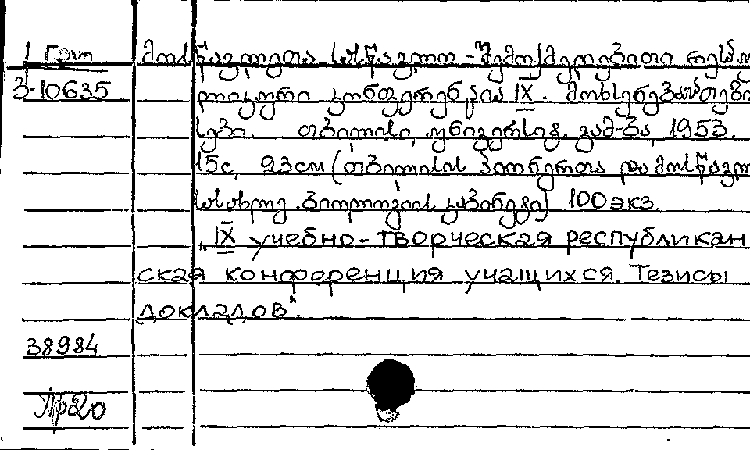 1 Грт
მოსწავლეთა სასწავლო-შემოქმედებითი რესპუ
3-10635
ლიკური კონფერენცია IX. მოხსენებათა თეზი
სები. თბილისი, უნივერსიტ. გამ-ბა, 1953.
15с, 23см (თბილისის პიონერთა და მოსწავლ
სასახლე. ბიოლოგიის კაბინეტი) 100экз
„IX учебно-творческая республикан
ская конференция учащихся. Тезисы
докладов“.
38984
Пр20